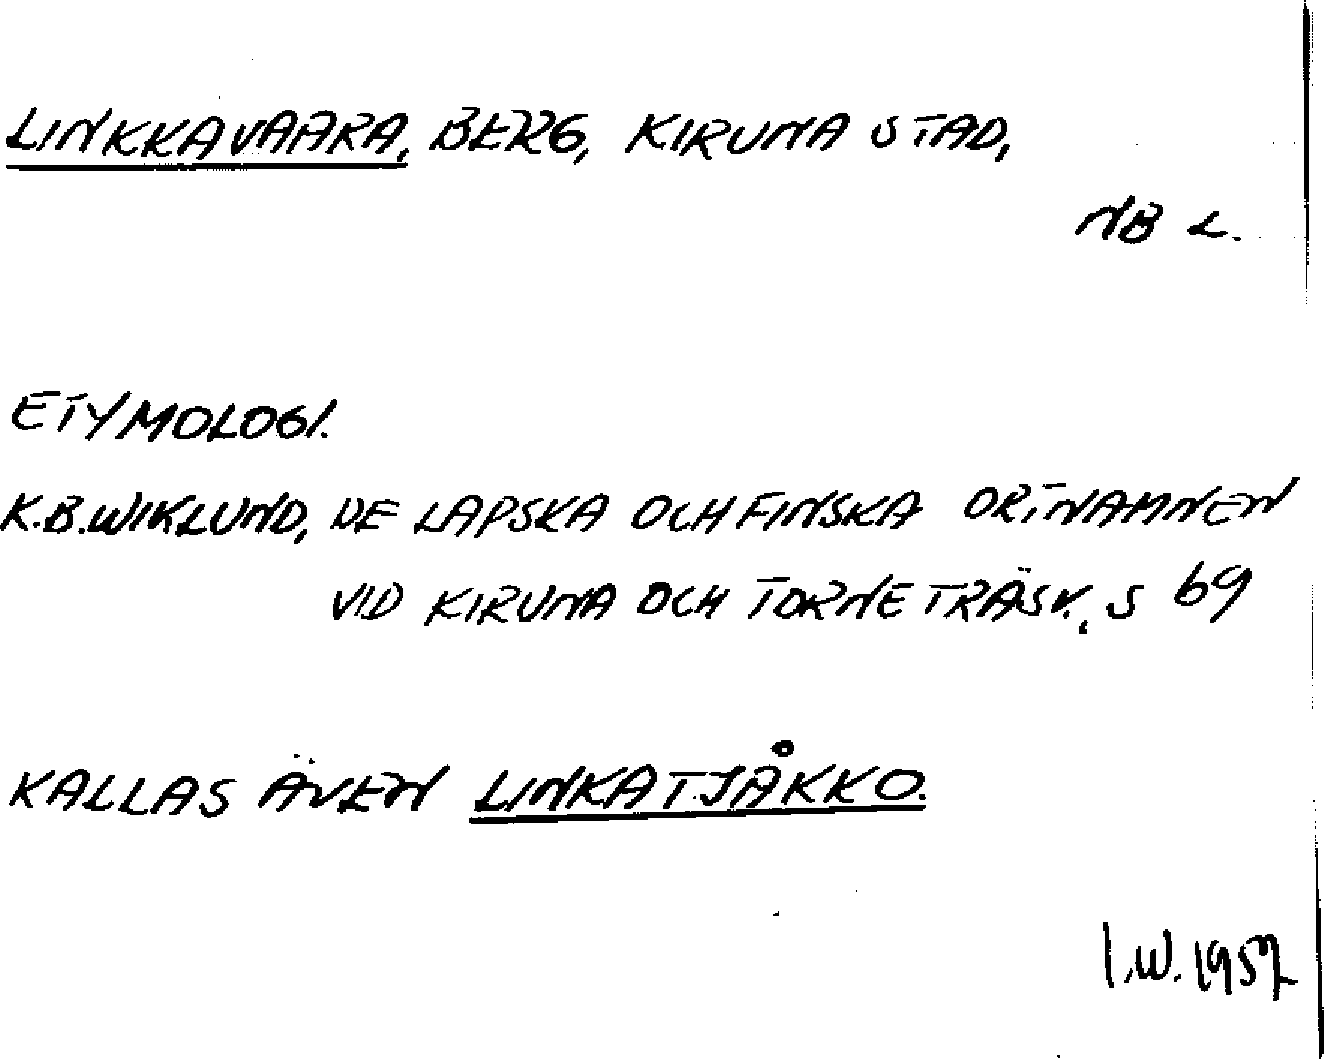 LINKKAVAARA, BERG, KIRUNA STAD,
NB L.
ETYMOLOGI.
K.B. WIKLUND, DE LAPSKA OCH FINSKA ORTNAMNEN
VID KIRUNA OCH TORNE TRÄSK, S 69
KALLAS ÄVEN LINKATJÅKKO.
I.W.